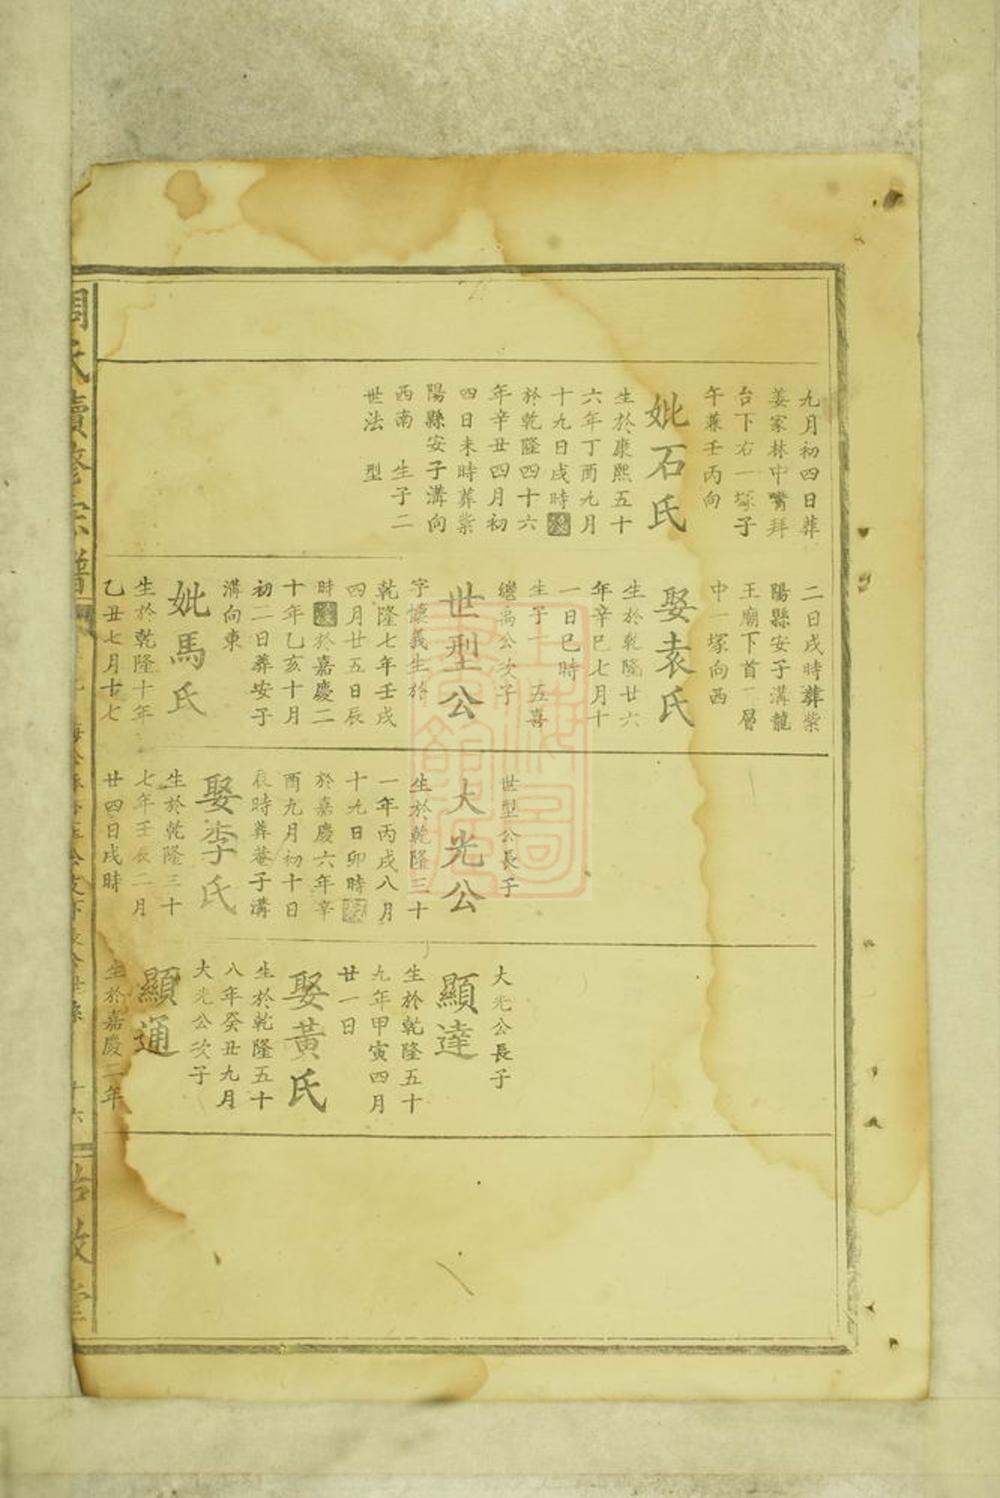 九月初四日葬
姜家林中嘴拜
台下右一塚子
午兼壬丙向
妣石氏
生於康熙五十
六年丁酉九月
十九日戌時歿
於乾隆四十六
年辛丑四月初
四日未時葬紫
陽縣安子溝向
西南 生子二
世法 型
二日戌時葬紫
陽縣安子溝龍
王廟下首一層
中一塚向西
娶袁氏
生於乾隆廿六
年辛巳七月十
一日巳時
生子一 五喜
世型公
繼禹公次子
字懷義生於
乾隆七年壬戌
四月廿五日辰
時歿於嘉慶二
十年乙亥十月
初二日葬安子
溝向東
妣馬氏
生於乾隆十年
乙丑七月十七
大光公
世型公長子
生於乾隆三十
一年丙戌八月
十九日卯時歿
於嘉慶六年辛
酉九月初十日
辰時葬巷子溝
娶李氏
生於乾隆三十
七年壬辰二月
廿四日戌時
大光公長子
顯達
生於乾隆五十
九年甲寅四月
廿一日
娶黃氏
生於乾隆五十
八年癸丑九月
大光公次子
顯通
生於嘉慶二年
周氏續修宗譜
十六